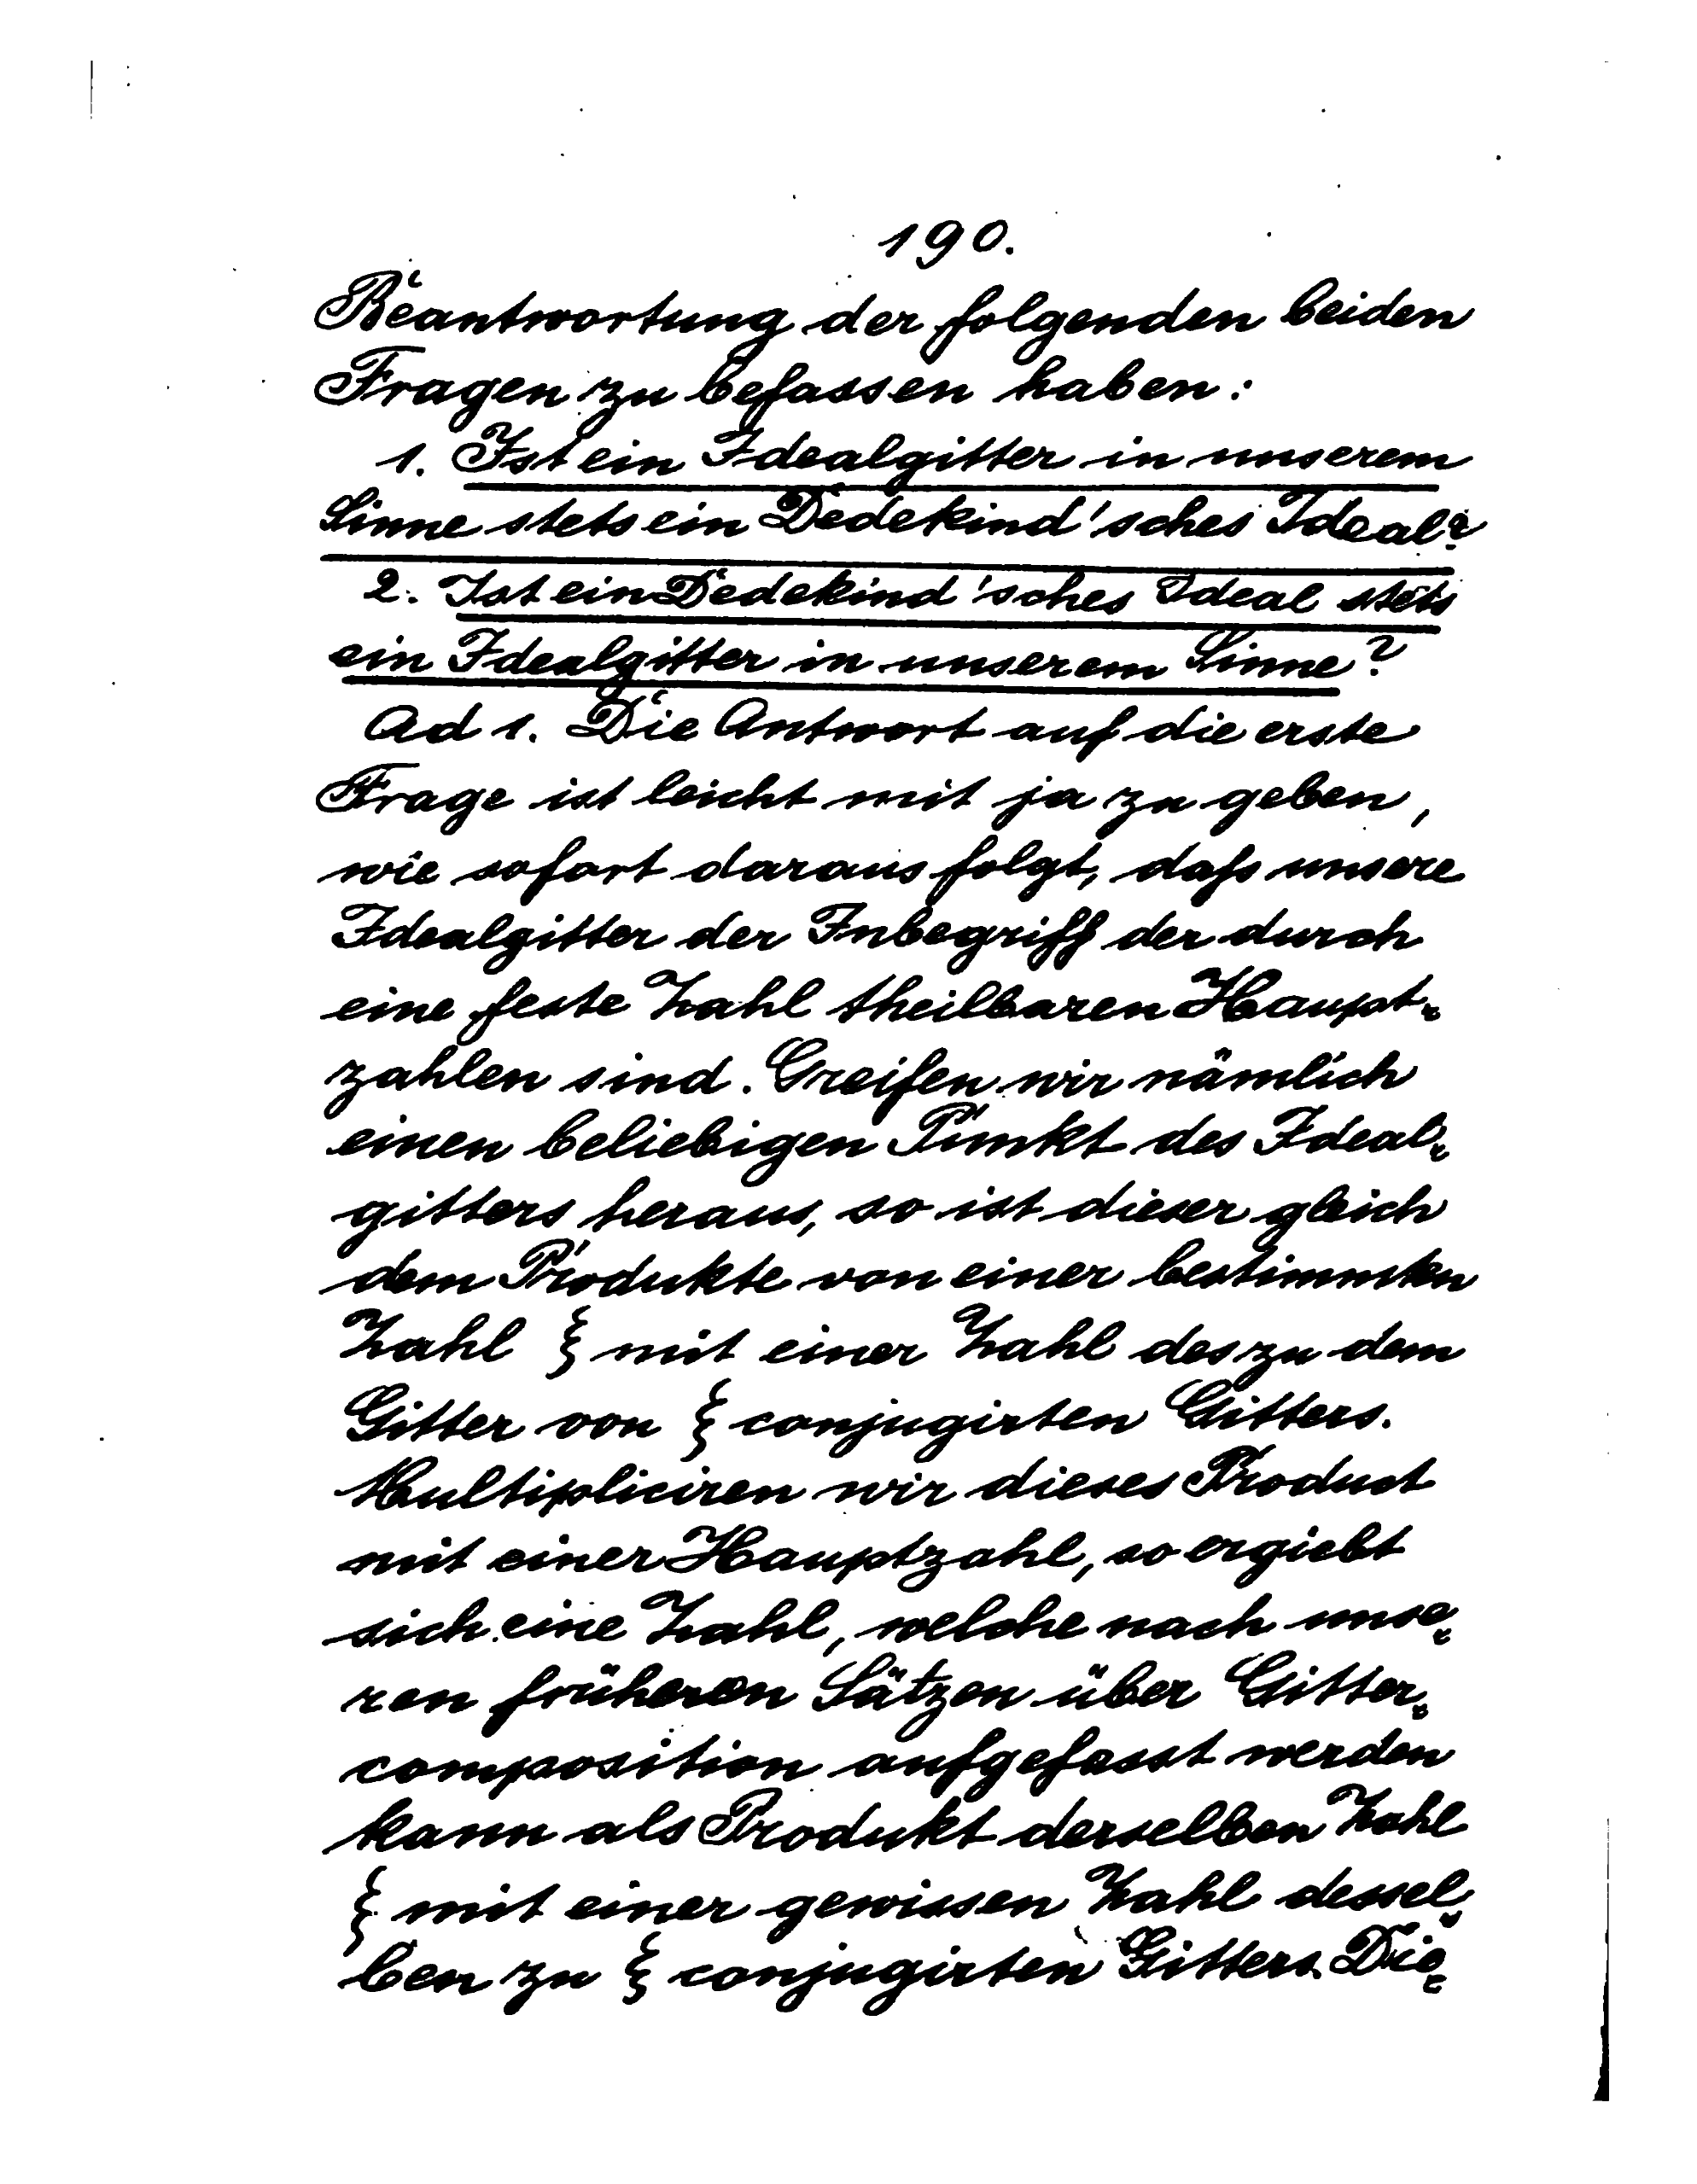 190.
Beantwortung der folgenden beiden
Fragen zu befassen haben:
1. Ist ein Idealgitter in unserem
Sinne stets ein Dedekind'sches Ideal?
2. Ist ein Dedekind'sches Ideal stets
ein Idealgitter in unserem Sinne?
Ad 1. Die Antwort auf die erste
Frage ist leicht mit ja zu geben,
wie sofort daraus folgt, daß unsere
Idealgitter der Inbegriff der durch
eine feste Zahl theilbaren Haupt-
zahlen sind. Greifen wir nämlich
einen beliebigen Punkt des Ideal-
gitters heraus, so ist dieser gleich
dem Produkte von einer bestimmten
Zahl ξ mit einer Zahl des zu dem
Gitter von ξ conjugirten Gitters.
Multipliciren wir dieses Product
mit einer Hauptzahl, so ergiebt
sich eine Zahl, welche nach unse-
ren früheren Sätzen über Gitter-
composition aufgefasst werden
kann als Produkt derselben Zahl
ξ mit einer gewissen Zahl dessel-
ben zu ξ conjugirten Gitters. Die-